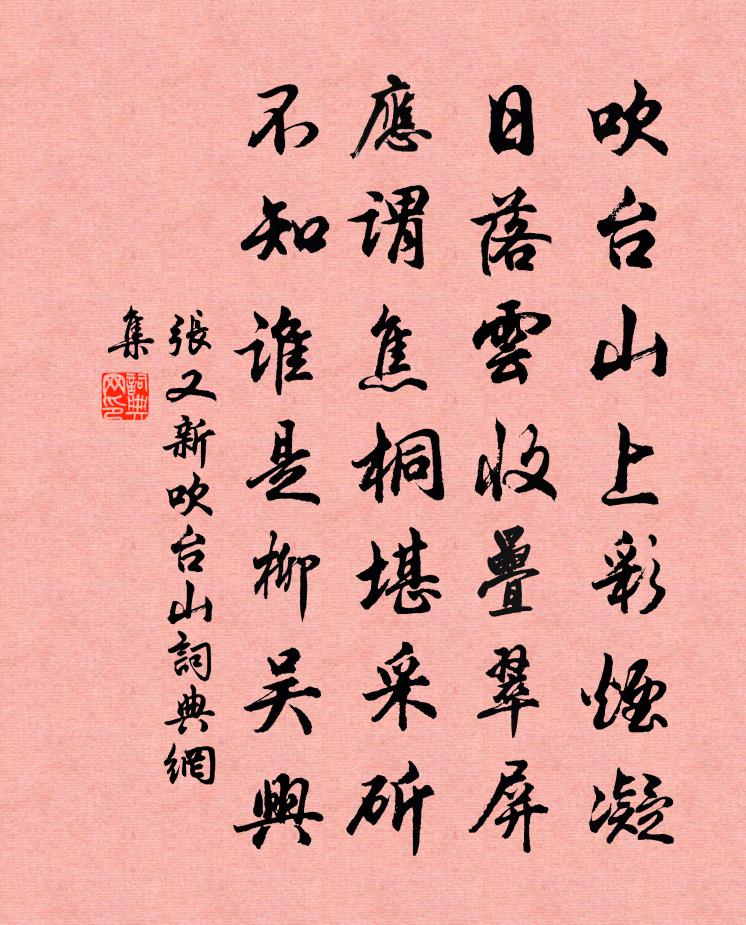 吹台山上彩煙凝
日落雲收疊翠屏
應謂焦桐堪采斫
不知誰是柳吴興
張又新吹台山詞典網
集
詞典网印